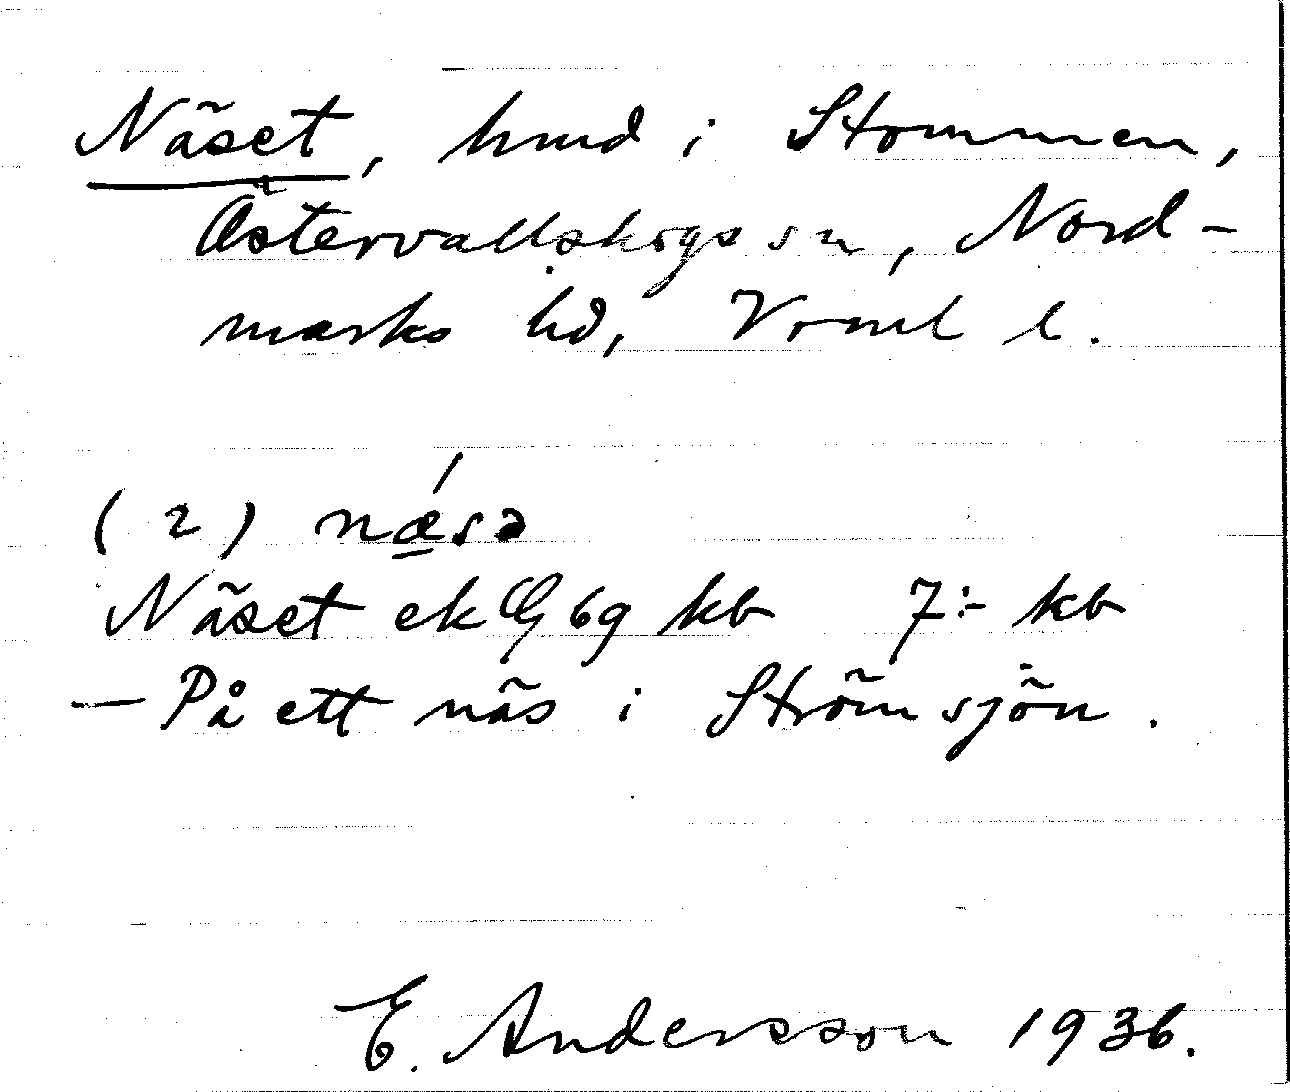 Näset, hmd i Stommen,
Östervallskogs sn, Nord-
marks hd, Vrml l.
(2) nǽ̱sə
Näset ek G 69 kb 7:- kb
— På ett näs i Strömsjön.
E. Andersson 1936.